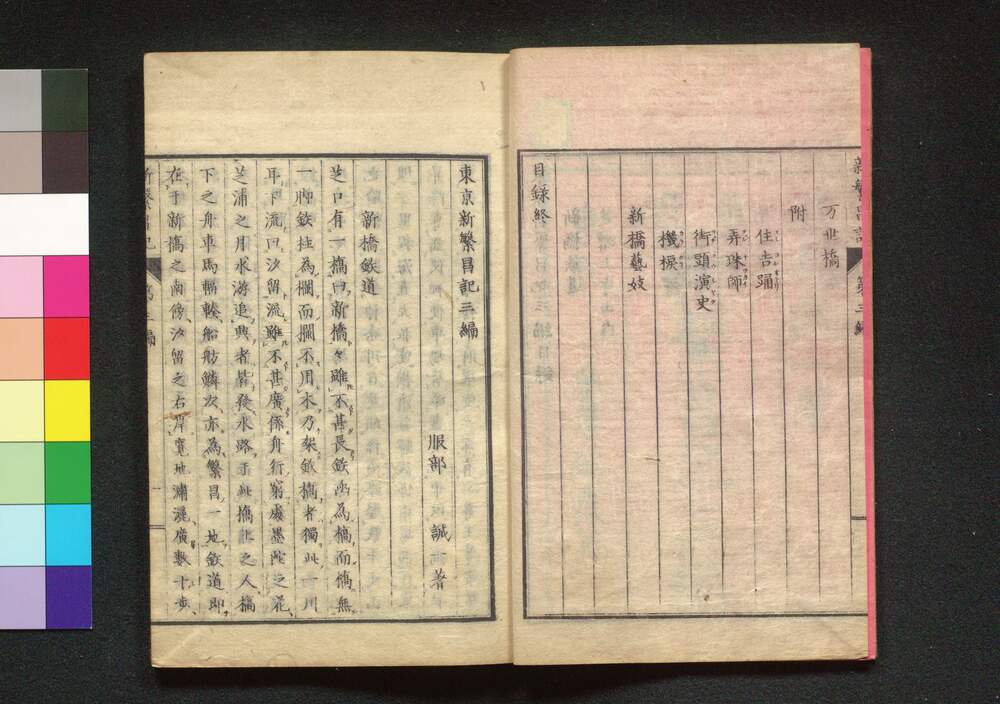 新繁昌記 第三編
万世橋
附
住吉踊
弄珠師
街頭演史
機捩
新橋藝妓
目録終
東京新繁昌記三編
服部誠一著
新橋鉄道
芝口有一橋曰新橋々雖不甚長鉄為橋而橋無
一脚鉄柱為欄而欄不用木乃架鉄橋者獨此一川
耳下流曰汐留流雖不甚廣係舟行窮處墨陀之花
芝浦之月水游追興者皆発水路于此橋北之人橋
下之舟車馬輻輳船舫鱗次亦為繁昌一地鉄道即
在于新橋之南傍汐留之右岸寛地瀟洒廣数十歩